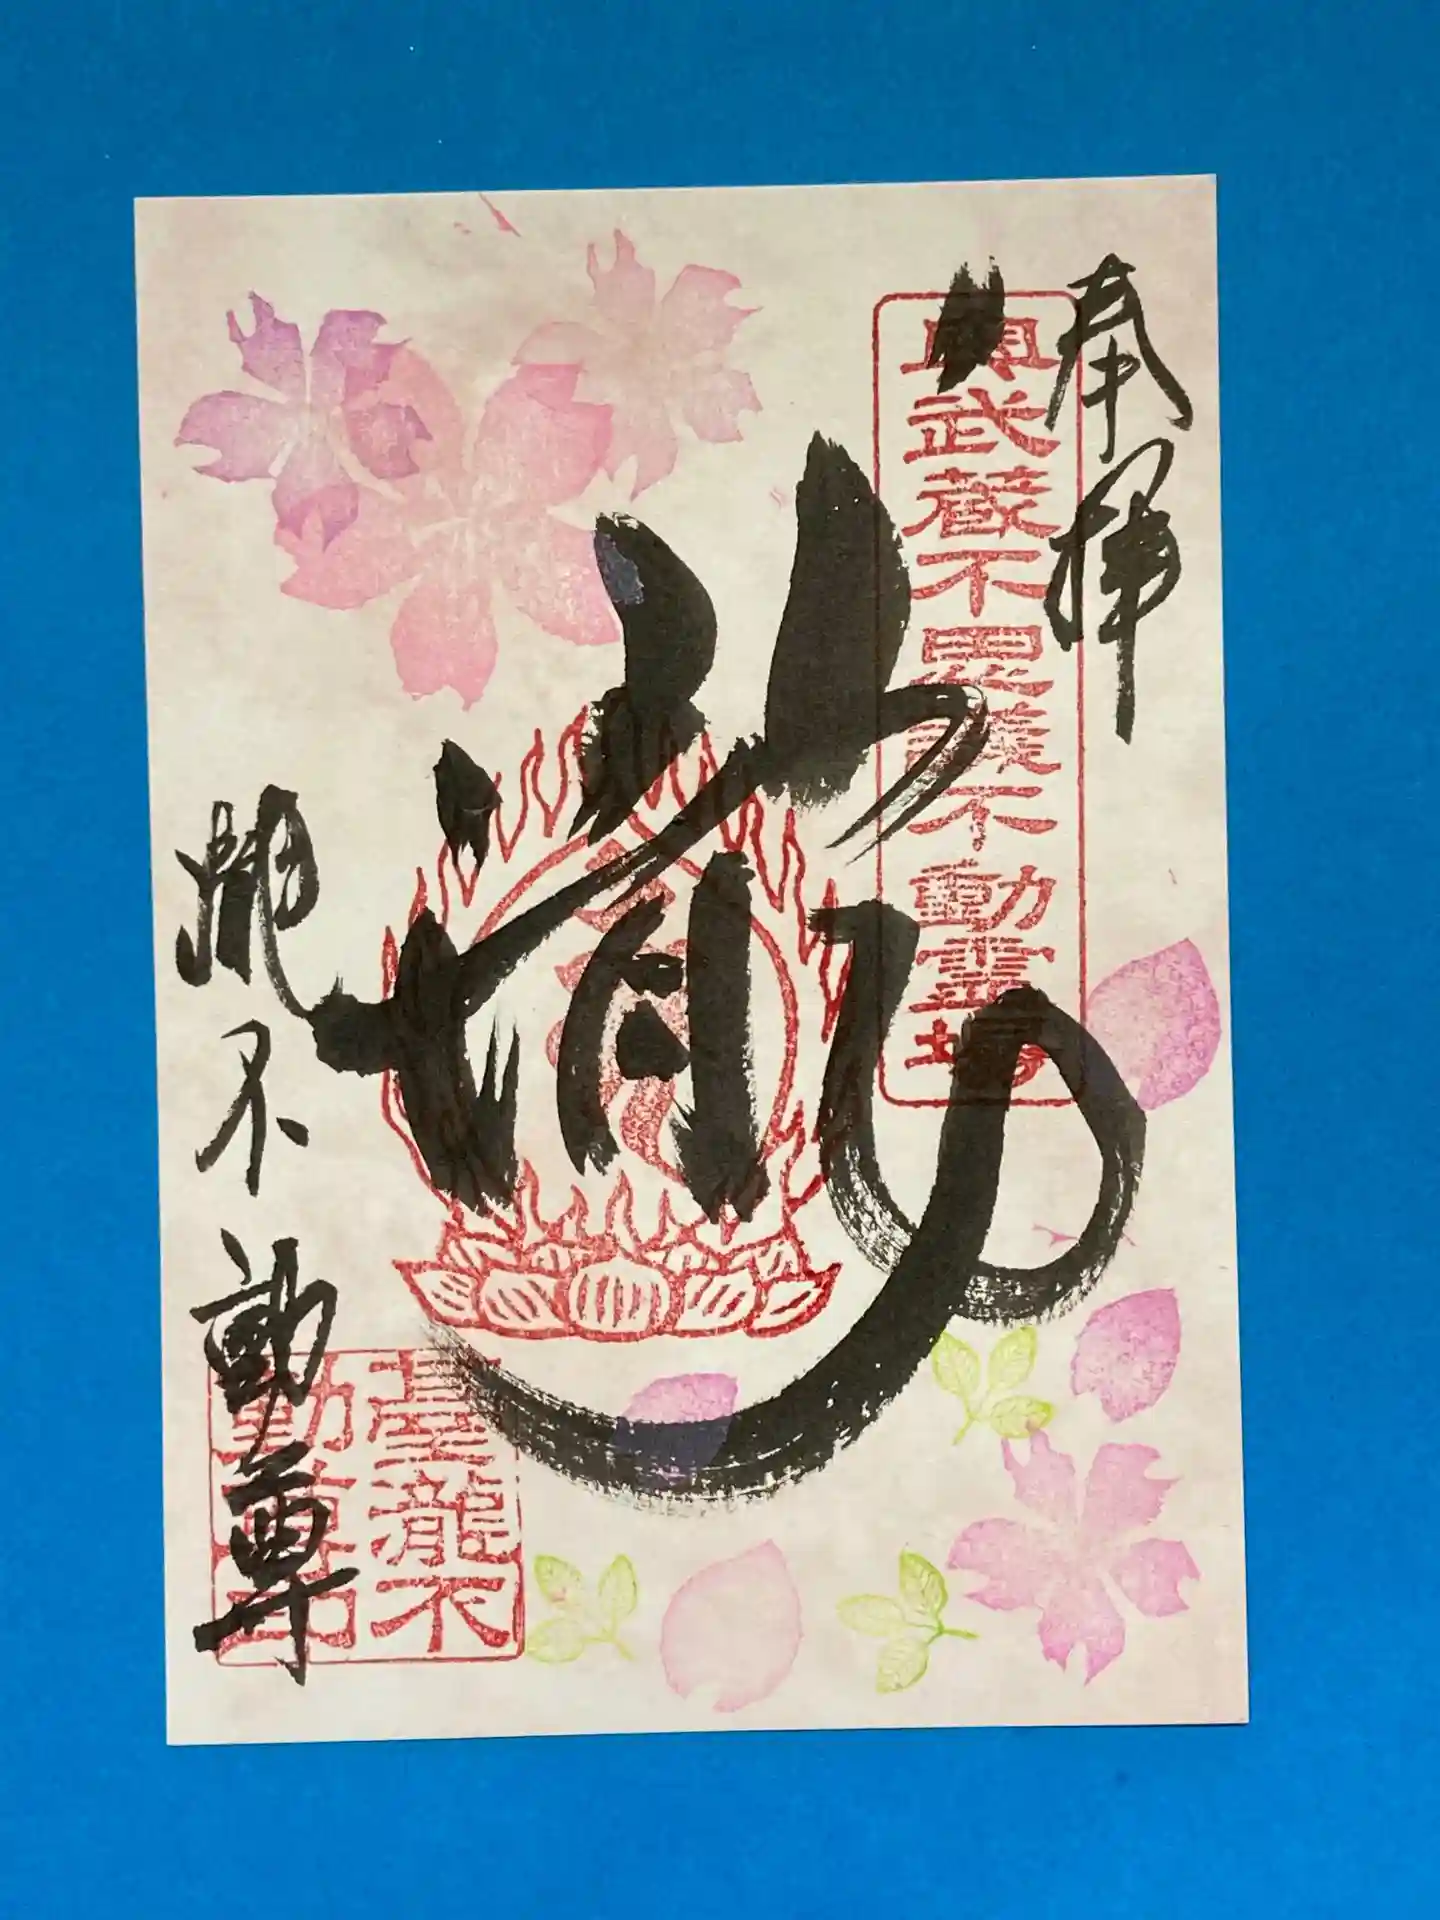 奉拝
奥武蔵不思議不動霊場
龍
瀧不動尊
臺瀧不動尊印